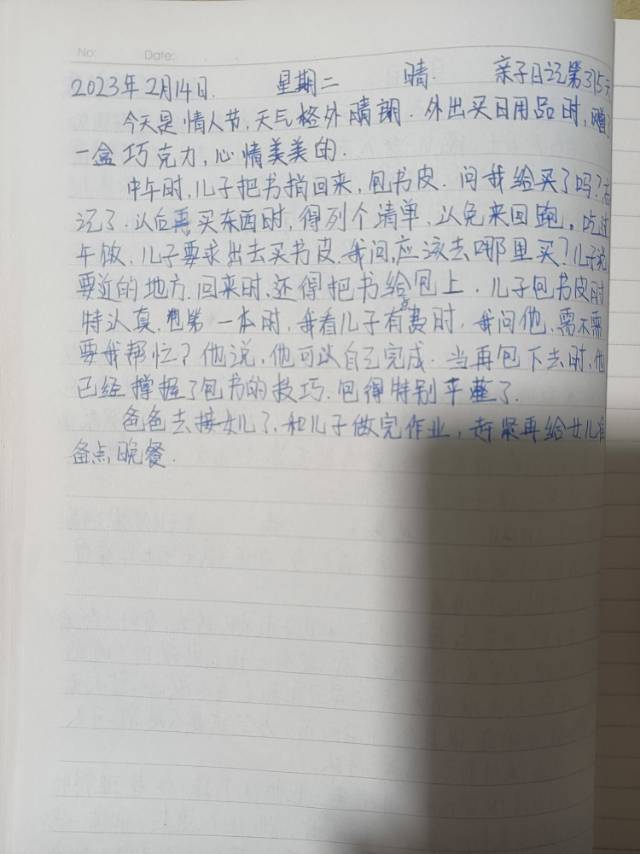 No:    Date:
2023年2月14日. 星期二 晴. 亲子日记第315天
今天是情人节,天气格外晴朗.外出买日用品时,赠
一盒巧克力,心情美美的.
中午时,儿子把书捎回来,包书皮.问我给买了吗?忘
记了.以后再买东西时,得列个清单,以免来回跑。吃过
午饭,儿子要求出去买书皮,我问,应该去哪里买?儿子说
要近的地方.回来时,还得把书给包上.儿子包书皮时
特认真,包第一本时,我看儿子有点费时,我问他,需不需
要我帮忙?他说,他可以自己完成.当再包下去时,他
已经撑握了包书的技巧.包得特别平整了.
爸爸去接女儿了.和儿子做完作业,赶紧再给女儿准
备点晚餐.